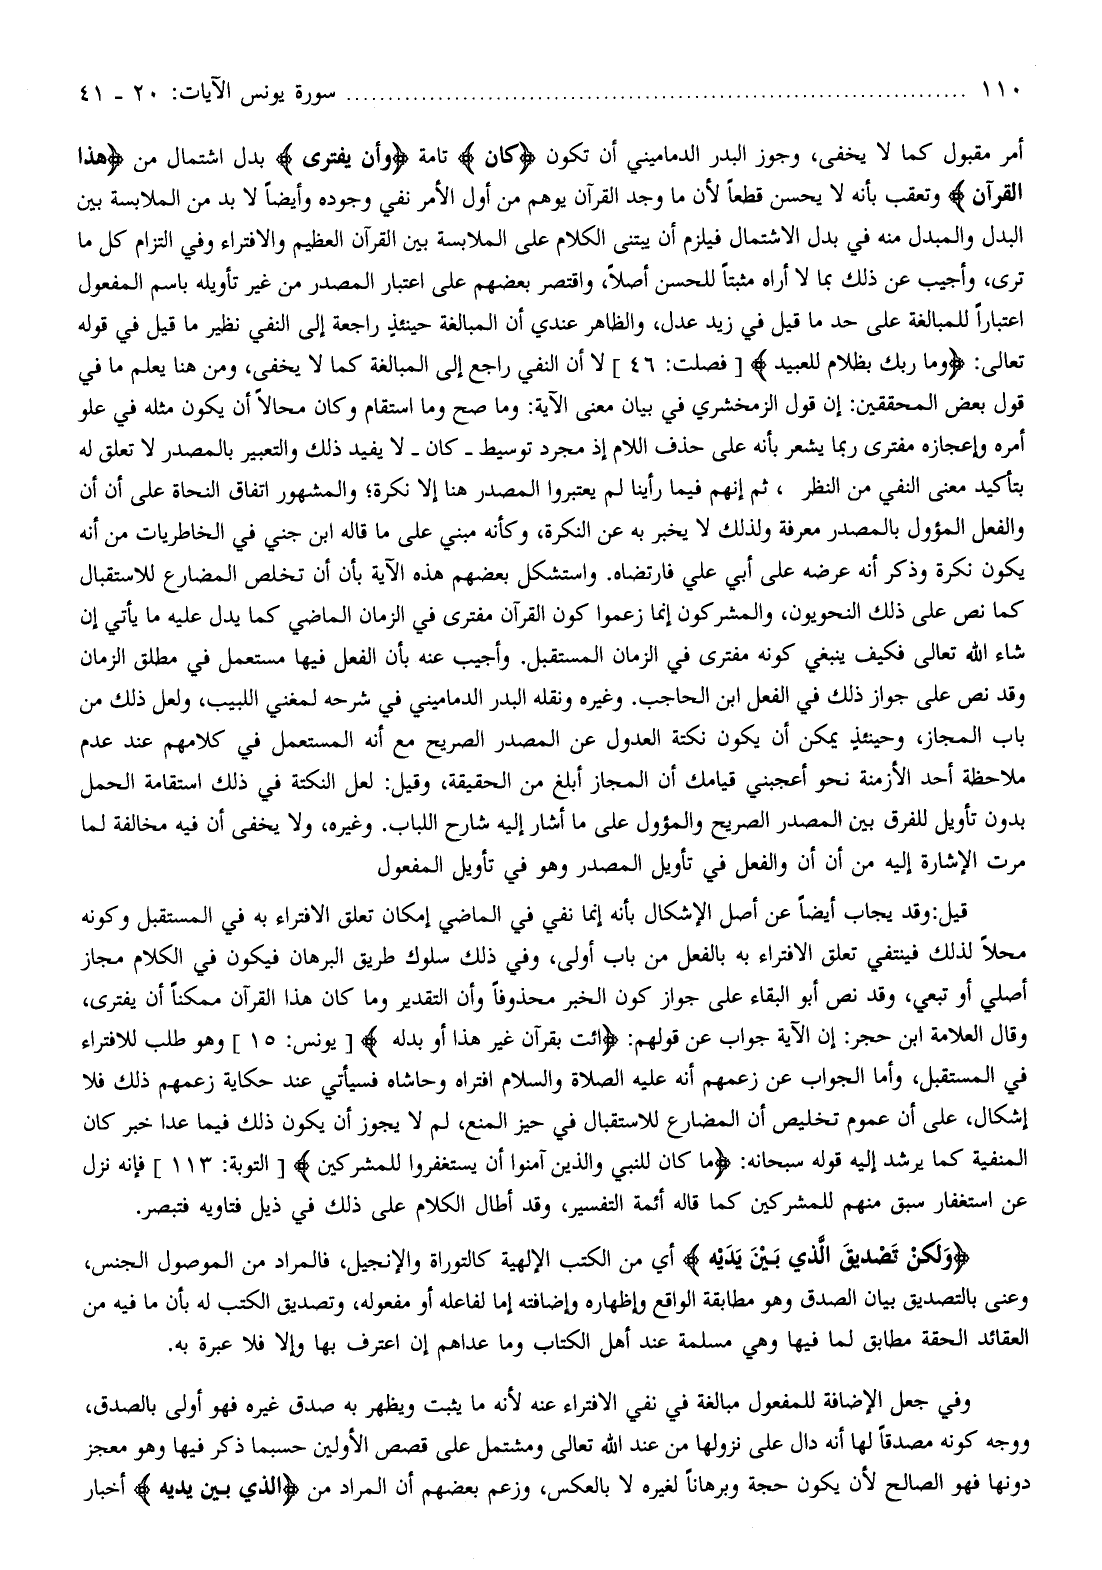 ١١٠ ........................................................................ سورة يونس الآيات: ٢٠ ـ ٤١
أمر مقبول كما لا يخفى، وجوز البدر الدماميني أن تكون ﴿كان﴾ تامة ﴿وأن يفترى﴾ بدل اشتمال من ﴿هذا
القرآن﴾ وتعقب بأنه لا يحسن قطعاً لأن ما وجد القرآن يوهم من أول الأمر نفي وجوده وأيضاً لا بد من الملابسة بين
البدل والمبدل منه في بدل الاشتمال فيلزم أن يبتنى الكلام على الملابسة بين القرآن العظيم والافتراء وفي التزام كل ما
ترى، وأجيب عن ذلك بما لا أراه مثبتاً للحسن أصلاً، واقتصر بعضهم على اعتبار المصدر من غير تأويله باسم المفعول
اعتباراً للمبالغة على حد ما قيل في زيد عدل، والظاهر عندي أن المبالغة حينئذٍ راجعة إلى النفي نظير ما قيل في قوله
تعالى: ﴿وما ربك بظلام للعبيد﴾ [ فصلت: ٤٦ ] لا أن النفي راجع إلى المبالغة كما لا يخفى، ومن هنا يعلم ما في
قول بعض المحققين: إن قول الزمخشري في بيان معنى الآية: وما صح وما استقام وكان محالاً أن يكون مثله في علو
أمره وإعجازه مفترى ربما يشعر بأنه على حذف اللام إذ مجرد توسيط ـ كان ـ لا يفيد ذلك والتعبير بالمصدر لا تعلق له
بتأكيد معنى النفي من النظر ، ثم إنهم فيما رأينا لم يعتبروا المصدر هنا إلا نكرة؛ والمشهور اتفاق النحاة على أن أن
والفعل المؤول بالمصدر معرفة ولذلك لا يخبر به عن النكرة، وكأنه مبني على ما قاله ابن جني في الخاطريات من أنه
يكون نكرة وذكر أنه عرضه على أبي علي فارتضاه. واستشكل بعضهم هذه الآية بأن أن تخلص المضارع للاستقبال
كما نص على ذلك النحويون، والمشركون إنما زعموا كون القرآن مفترى في الزمان الماضي كما يدل عليه ما يأتي إن
شاء الله تعالى فكيف ينبغي كونه مفترى في الزمان المستقبل. وأجيب عنه بأن الفعل فيها مستعمل في مطلق الزمان
وقد نص على جواز ذلك في الفعل ابن الحاجب. وغيره ونقله البدر الدماميني في شرحه لمغني اللبيب، ولعل ذلك من
باب المجاز، وحينئذٍ يمكن أن يكون نكتة العدول عن المصدر الصريح مع أنه المستعمل في كلامهم عند عدم
ملاحظة أحد الأزمنة نحو أعجبني قيامك أن المجاز أبلغ من الحقيقة، وقيل: لعل النكتة في ذلك استقامة الحمل
بدون تأويل للفرق بين المصدر الصريح والمؤول على ما أشار إليه شارح اللباب. وغيره، ولا يخفى أن فيه مخالفة لما
مرت الإشارة إليه من أن أن والفعل في تأويل المصدر وهو في تأويل المفعول
قيل:وقد يجاب أيضاً عن أصل الإشكال بأنه إنما نفي في الماضي إمكان تعلق الافتراء به في المستقبل وكونه
محلاً لذلك فينتفي تعلق الافتراء به بالفعل من باب أولى، وفي ذلك سلوك طريق البرهان فيكون في الكلام مجاز
أصلي أو تبعي، وقد نص أبو البقاء على جواز كون الخبر محذوفاً وأن التقدير وما كان هذا القرآن ممكناً أن يفترى،
وقال العلامة ابن حجر: إن الآية جواب عن قولهم: ﴿ائت بقرآن غير هذا أو بدله ﴾ [ يونس: ١٥ ] وهو طلب للافتراء
في المستقبل، وأما الجواب عن زعمهم أنه عليه الصلاة والسلام افتراه وحاشاه فسيأتي عند حكاية زعمهم ذلك فلا
إشكال، على أن عموم تخليص أن المضارع للاستقبال في حيز المنع، لم لا يجوز أن يكون ذلك فيما عدا خبر كان
المنفية كما يرشد إليه قوله سبحانه: ﴿ما كان للنبي والذين آمنوا أن يستغفروا للمشركين﴾ [ التوبة: ١١٣ ] فإنه نزل
عن استغفار سبق منهم للمشركين كما قاله أئمة التفسير، وقد أطال الكلام على ذلك في ذيل فتاويه فتبصر.
﴿وَلَكنْ تَصْديقَ الَّذي بَيْنَ يَدَيْه﴾ أي من الكتب الإلهية كالتوراة والإنجيل، فالمراد من الموصول الجنس،
وعنى بالتصديق بيان الصدق وهو مطابقة الواقع وإظهاره وإضافته إما لفاعله أو مفعوله، وتصديق الكتب له بأن ما فيه من
العقائد الحقة مطابق لما فيها وهي مسلمة عند أهل الكتاب وما عداهم إن اعترف بها وإلا فلا عبرة به.
وفي جعل الإضافة للمفعول مبالغة في نفي الافتراء عنه لأنه ما يثبت ويظهر به صدق غيره فهو أولى بالصدق،
ووجه كونه مصدقاً لها أنه دال على نزولها من عند الله تعالى ومشتمل على قصص الأولين حسبما ذكر فيها وهو معجز
دونها فهو الصالح لأن يكون حجة وبرهاناً لغيره لا بالعكس، وزعم بعضهم أن المراد من ﴿الذي بين يديه﴾ أخبار